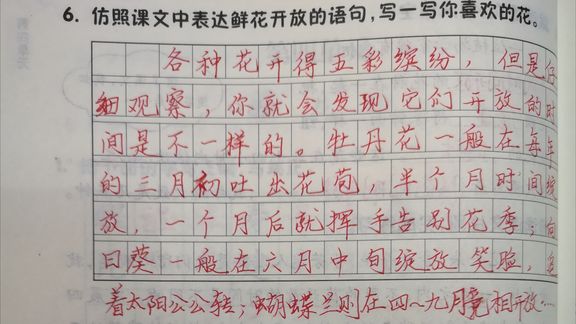 6. 仿照课文中表达鲜花开放的语句,写一写你喜欢的花。
各种花开得五彩缤纷，但是仔
细观察，你就会发现它们开放的时
间是不一样的。牡丹花一般在每年
的三月初吐出花苞，半个月时间绽
放，一个月后就挥手告别花季；向
日葵一般在六月中旬绽放笑脸，追
着太阳公公转；蝴蝶兰则在四～九月竞相开放……